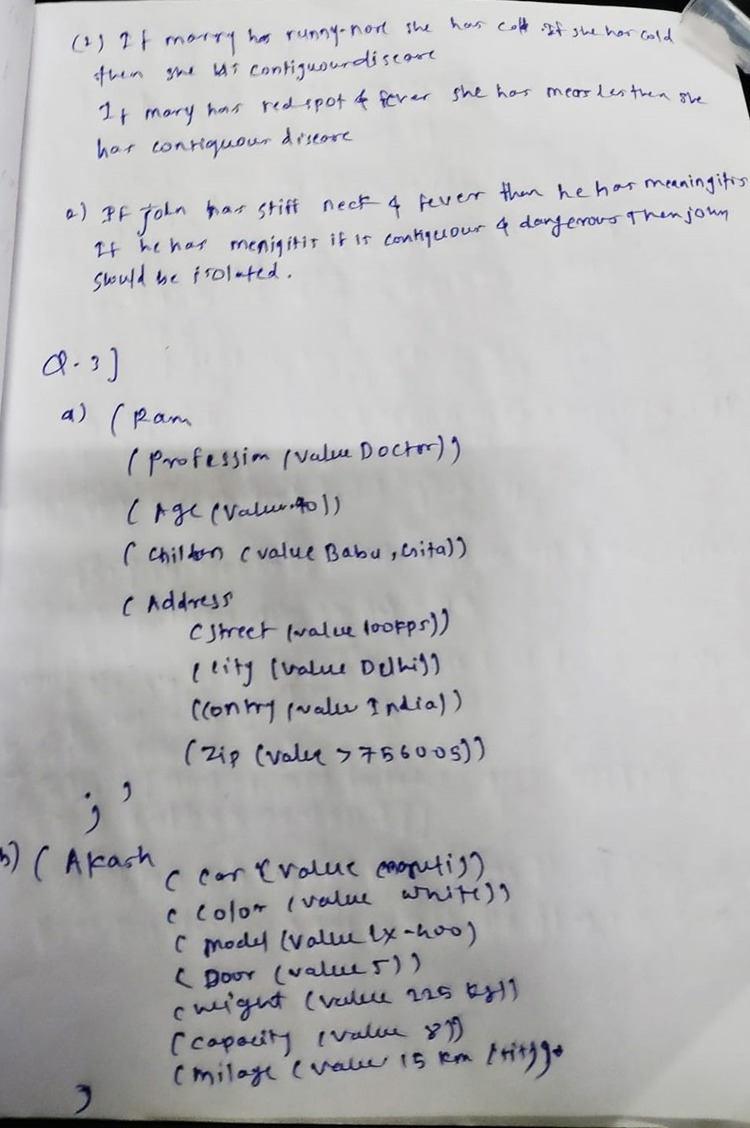 (1) If marry has runny-nose she has cold. If she has cold
then she has contiguour disease
If mary has red spot & fever she has measles then she
has contiguour disease
2) If John has stiff neck & fever then he has meaningitis
If he has menigitis it is contiguour & dangerous then john
should be isolated.
Q.3]
a) (Ram
(Profession (value Doctor))
(Age (value 40))
(Children (value Babu, Gita))
(Address
(Street (value 100FPS))
(City (value Delhi))
(Contry (value India))
(Zip (value > 756005))
; ,
b) (Akash
(Car (value maruti))
(Color (value white))
(model (value LX-400)
(Door (value 5))
(weight (value 225 kg))
(capacity (value 8))
(milage (value 15 km
)